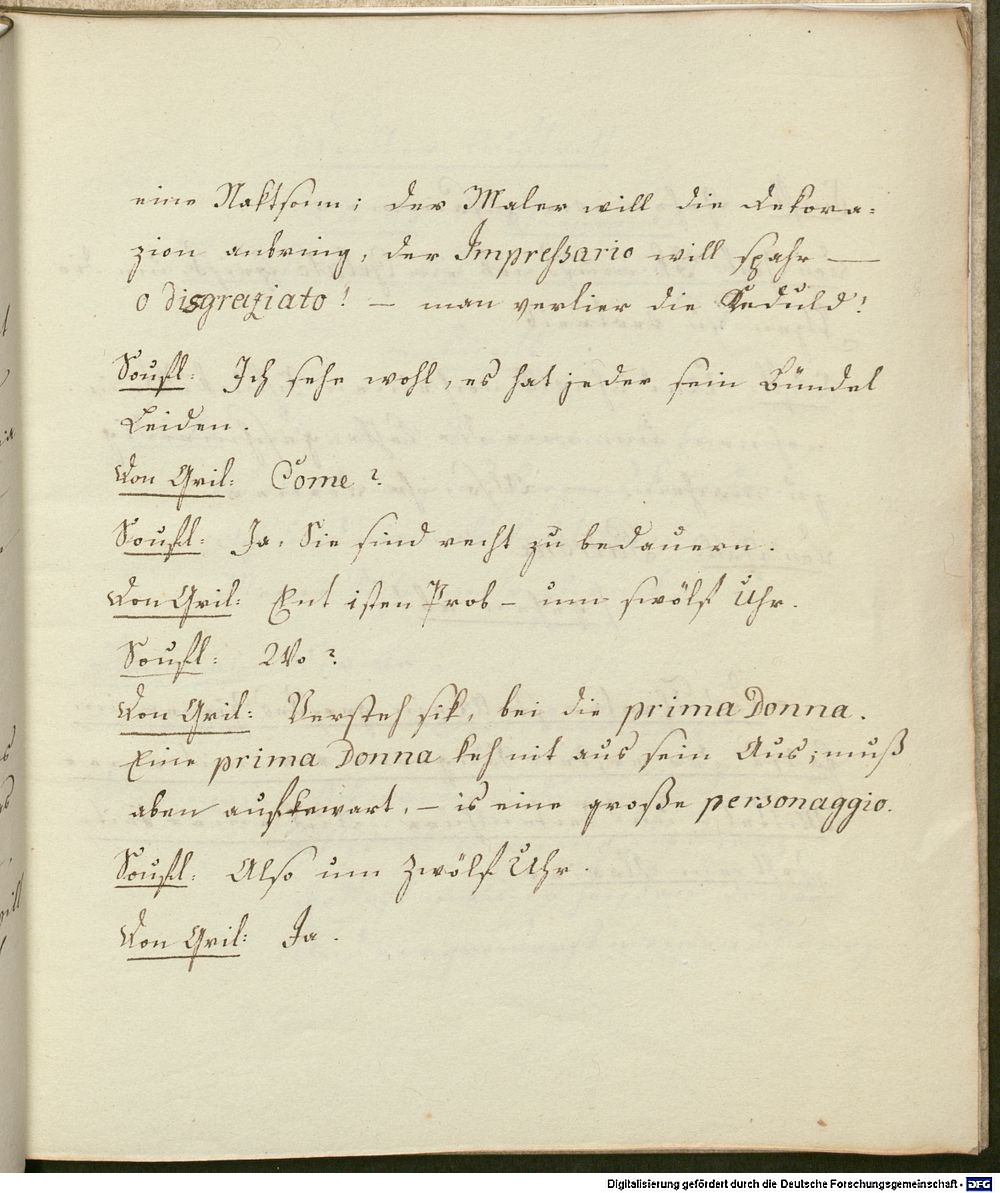 eine Naktsonn; der Maler will die Dekora=
zion anbring, der Impressario will spahr —
o disgraziato! — man verlier die Keduld!
Soufl: Ich sehe wohl, es hat jeder sein Bündel
Leiden.
Don Gril: Come?
Soufl: Ja, Sie sind recht zu bedauern.
Don Gril: Ent isten Prob — um swölf Uhr.
Soufl: Wo?
Don Gril: Versteh sik, bei die prima Donna.
Eine prima Donna keh nit aus sein Aus; muß
aben aufkewart, — is eine große personaggio.
Soufl: Also um zwölf Uhr.
Don Gril: Ja.
Digitalisierung gefördert durch die Deutsche Forschungsgemeinschaft - DFG